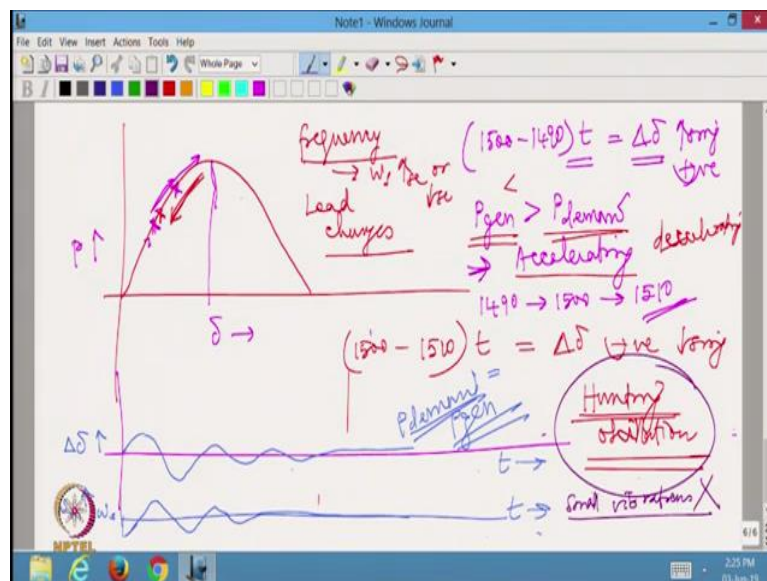 Note1 - Windows Journal
File Edit View Insert Actions Tools Help
Whole Page
B I
frequency
→ ωs ↑se or
↓se
Load
changes
(1500-1490) t = Δδ ↑ing
+ve
<
Pgen > Pdemand
decelerating
⇒ Accelerating
1490 → 1500 → 1510
P ↑
δ →
(1500 - 1510) t = Δδ -ve ↓ing
Pdemand =
Pgen
Hunting
oscillation
Δδ ↑
t →
t → small vibrations X
NPTEL
6/6
2:25 PM
03-Jun-19